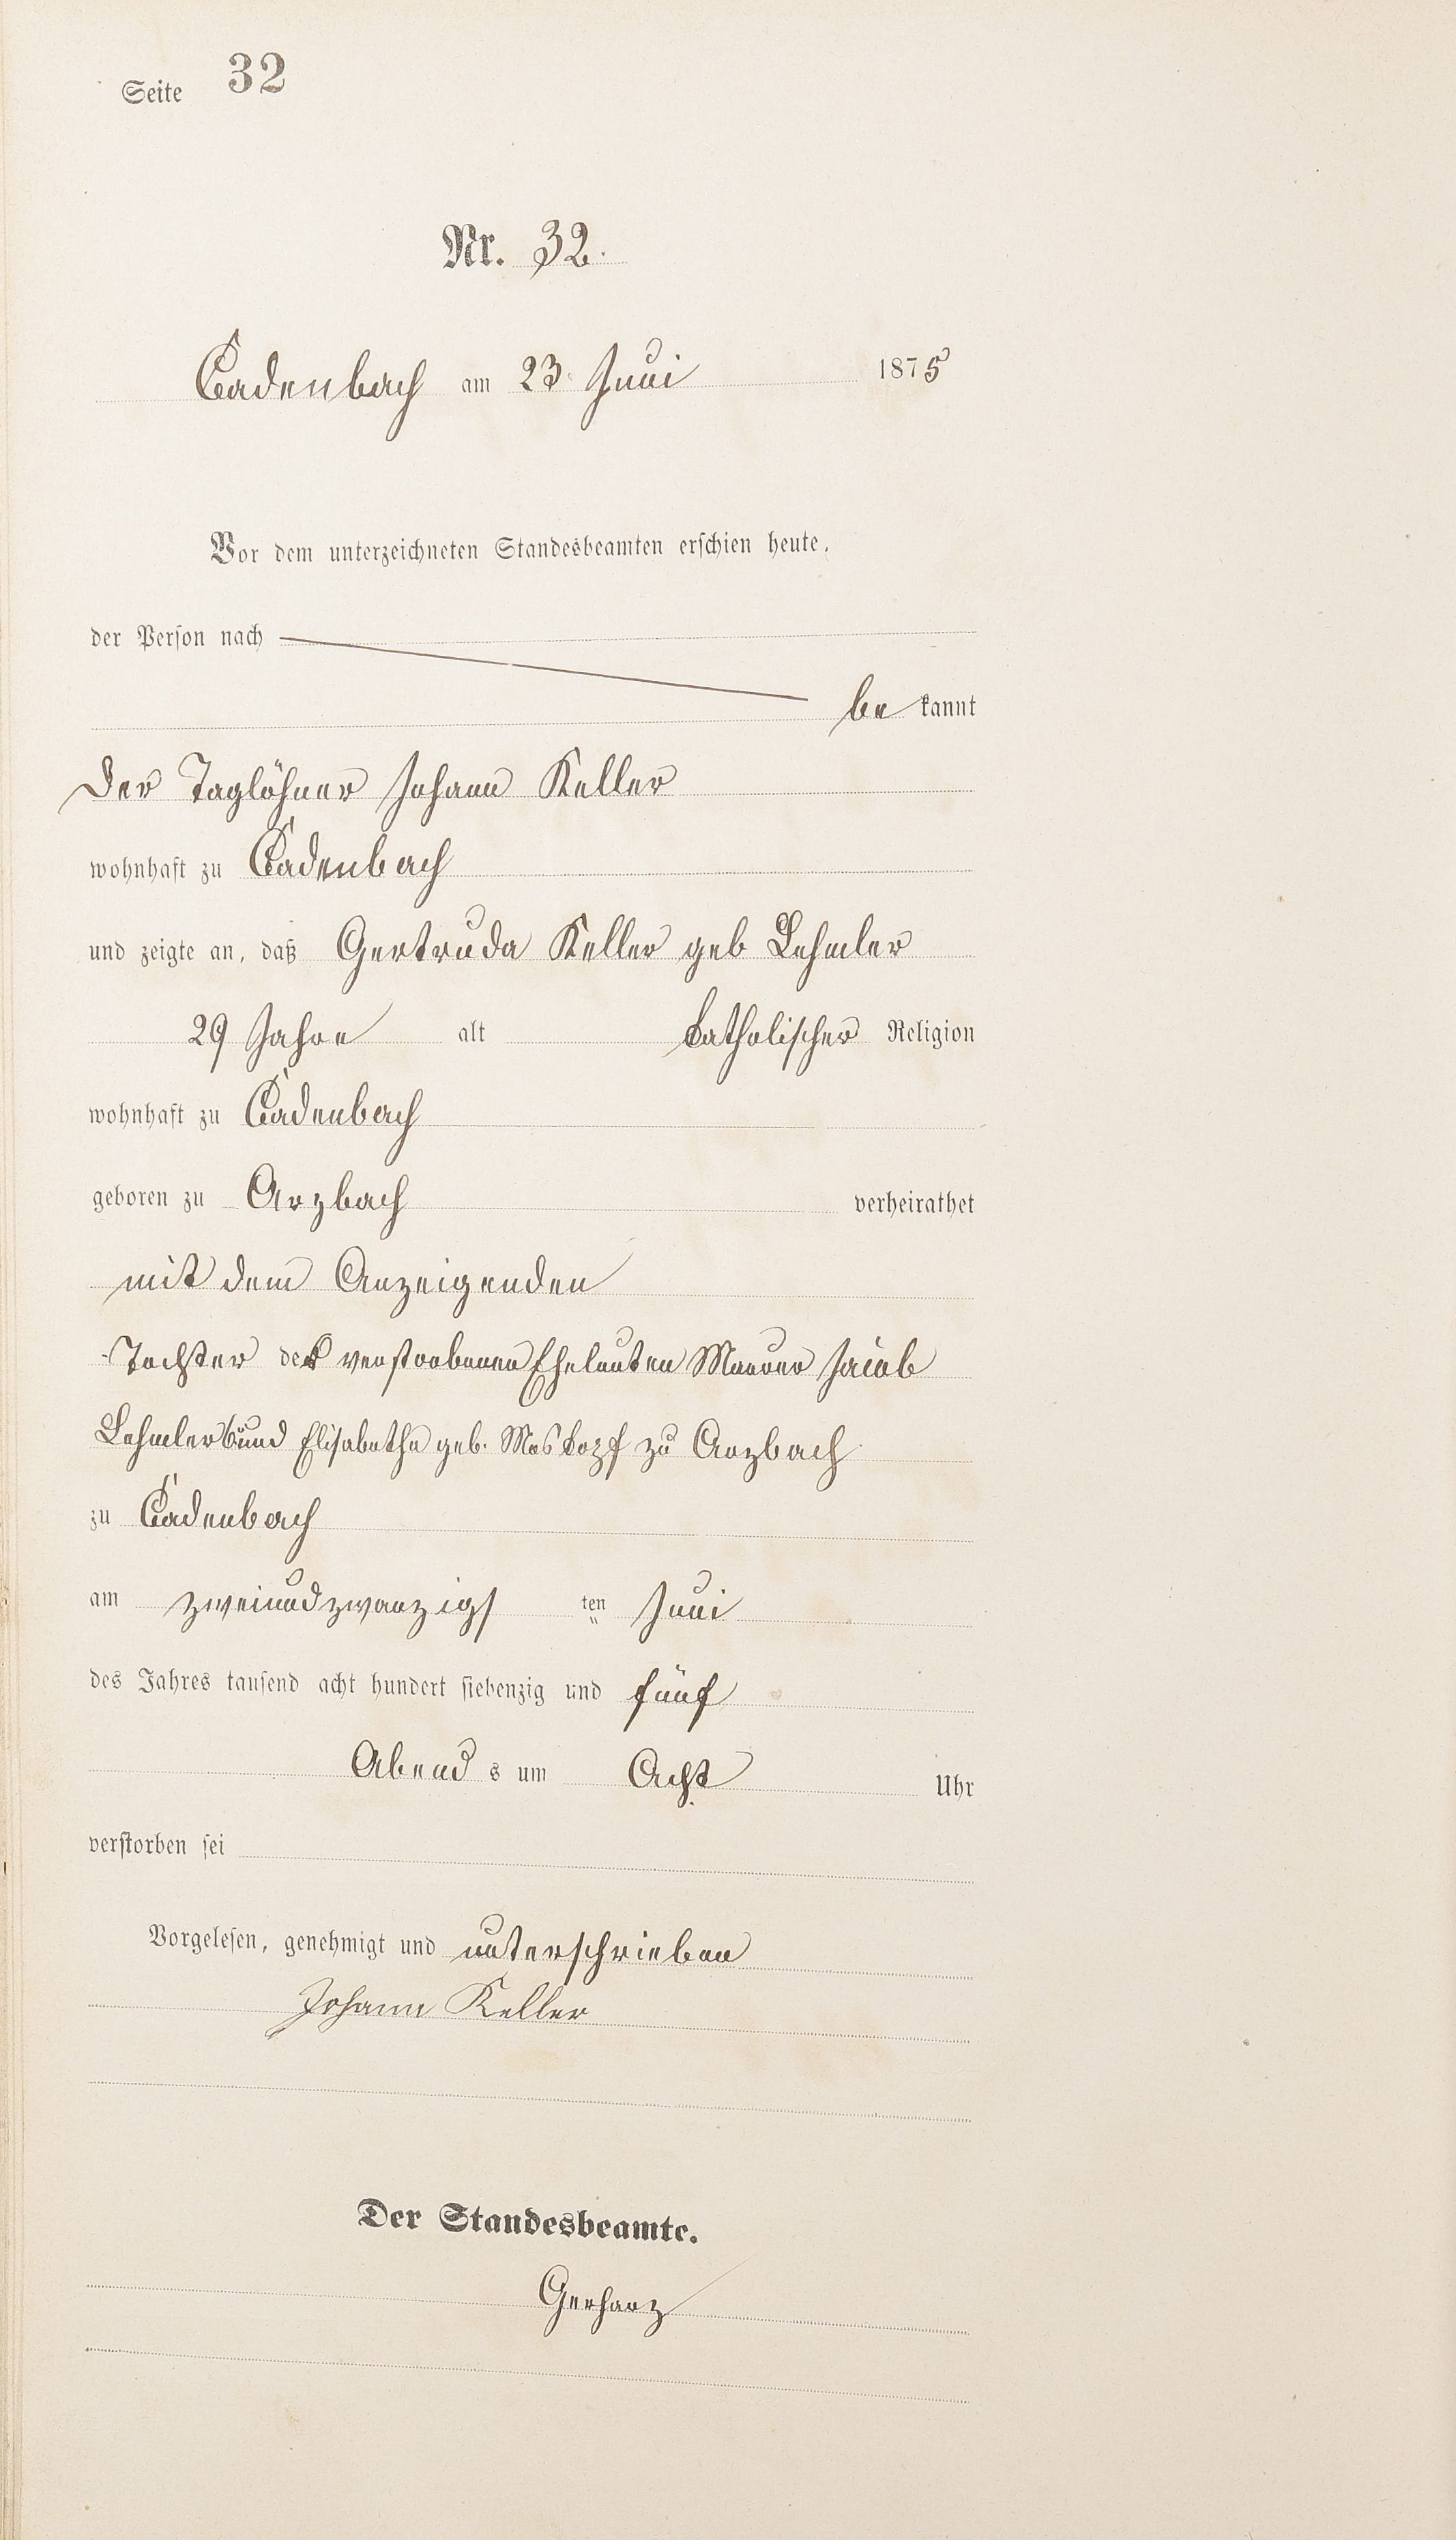 Seite 32
Nr. 32.
Cadenbach am 23 Juni 1875
Vor dem unterzeichneten Standesbeamten erschien heute,
der Person nach
be kannt
der Taglöhner Johann Keller
wohnhaft zu Cadenbach
und zeigte an, daß Gertruda Keller geb Lehmler
29 Jahre alt katholischer Religion
wohnhaft zu Cadenbach
geboren zu Arzbach verheirathet
mit dem Anzeigenden
Tochter der verstorbenen Eheleuten Maurer Jacob
Lehmler und Elisabetha geb. Maskopf zu Arzbach
zu Cadenbach
am zweiundzwanzigs ten Juni
des Jahres tausend acht hundert siebenzig und fünf
Abend s um Acht Uhr
verstorben sei
Vorgelesen, genehmigt und unterschrieben
Johann Keller
Der Standesbeamte.
Gerharz